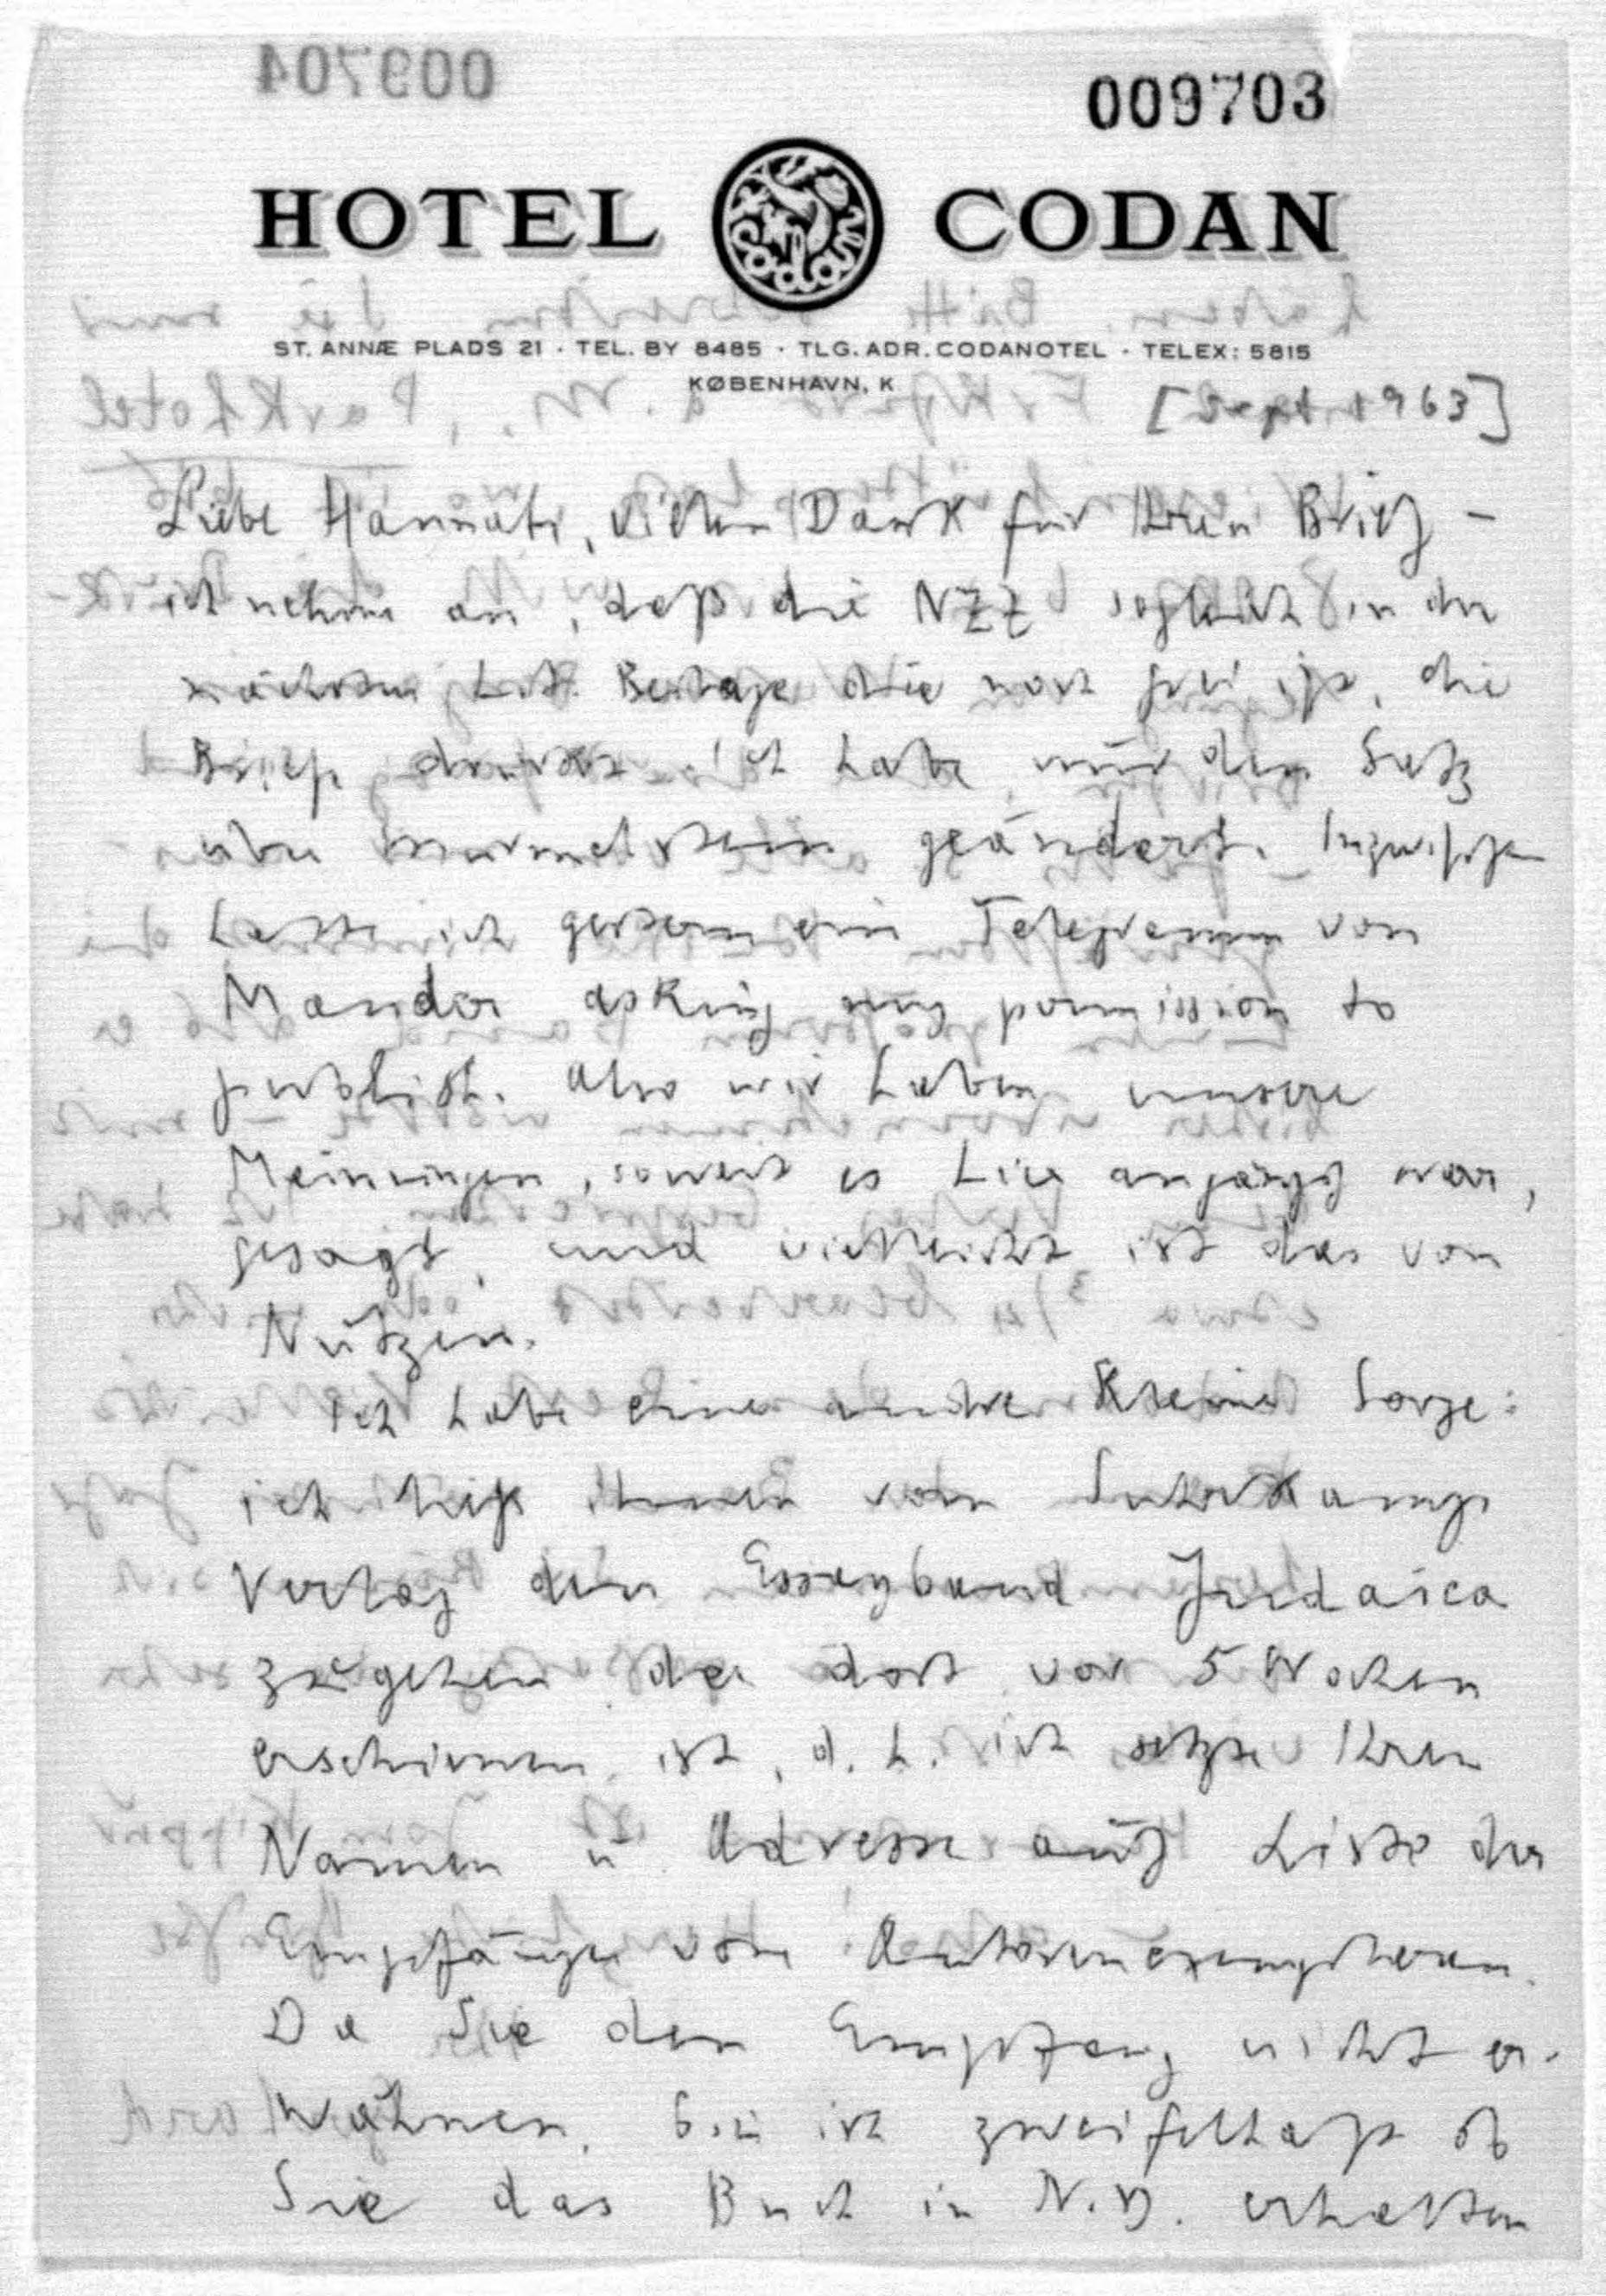 009703
HOTEL CODAN
ST. ANNÆ PLADS 21 · TEL. BY 8485 · TLG. ADR. CODANOTEL · TELEX: 5815
KØBENHAVN, K
[Sept 1963]
Liebe Hannah, vielen Dank für Ihren Brief –
ich nehme an, daß die NZZ sogleich in der
nächsten Lit. Beilage die noch frei ist, die
Briefe druckt. ich habe nur den Satz
über Murmelstein geändert. Inzwischen
hatte ich gestern ein Telegramm von
Mander asking my permission to
publish. Also wir haben unsere
Meinungen, soweit es hier angängig war,
gesagt, und vielleicht ist das von
Nutzen.
Ich habe eine andre kleine Sorge:
ich ließ Ihnen vom Suhrkamp
Verlag den Essayband Judaica
zugehen der dort vor 5 Wochen
erschienen ist, d. h. ich setzte Ihren
Namen u Adresse auf Liste der
Empfänger von Autorenexemplaren.
Da Sie den Empfang nicht er-
wähnen, bin ich zweifelhaft ob
Sie das Buch in N.Y. erhalten